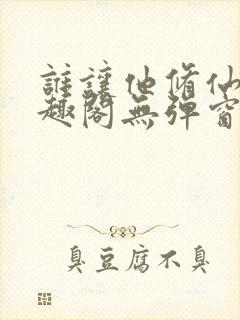 誰讓他脩仙
趣閣無彈窗
臭豆腐不臭